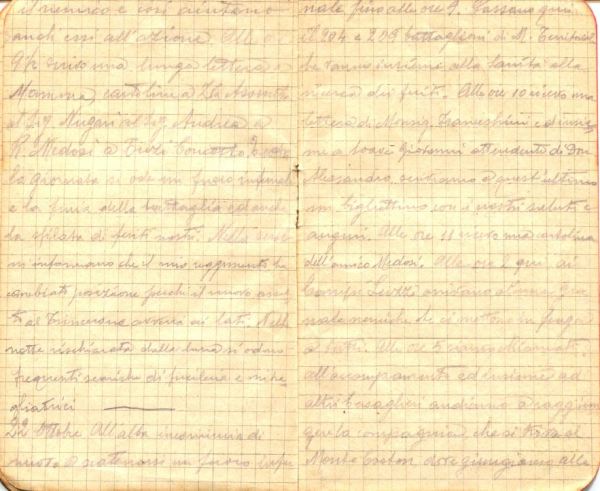 il nemico e così aiutano
anch'essi all'azione. Alle ore
9½ scrivo una lunga lettera a
Mamma, cartoline a Zia Assunta
al Sig. Mugnai al Sig. Andrea a
R. Medosi a Concetto. Tutta
la giornata si ode un fuoco infernale
e la furia della battaglia ed anche
la sfilata di feriti nostri. Nella sera
m'informano che il mio reggimento ha
cambiato posizione perchè il nuovo
ai lati. Nella
notte rischiarata dalla luna si odono
frequenti scariche di fucileria e mitra
gliatrici
22 Ottobre All'alba incomincia di
nuovo a scatenarsi un fuoco infer
nale fino alle ore 9. Passano quindi
il 204 e 209 battaglioni di M. Territoriale
che vanno insieme alla Sanità alla
ricerca dei feriti. Alle ore 10 ricevo una
lettera di Monsig. Franceschini e d'insie
me a Giovanni attendente di Don
Alessandro, scriviamo a quest'ultimo
un bigliettino con i nostri saluti e
auguri. Alle ore 11 ricevo una cartolina
dell'amico Medosi. Alle ore 2 qui ai
arrivano alcune gra
nate nemiche che ci mettono in fuga
a tutti. Alle ore 5 siamo chiamati
all'accampamento ed insieme ad
altri Bersaglieri andiamo a raggiun
gere la compagnia che si trova al
Monte dove giungiamo alle